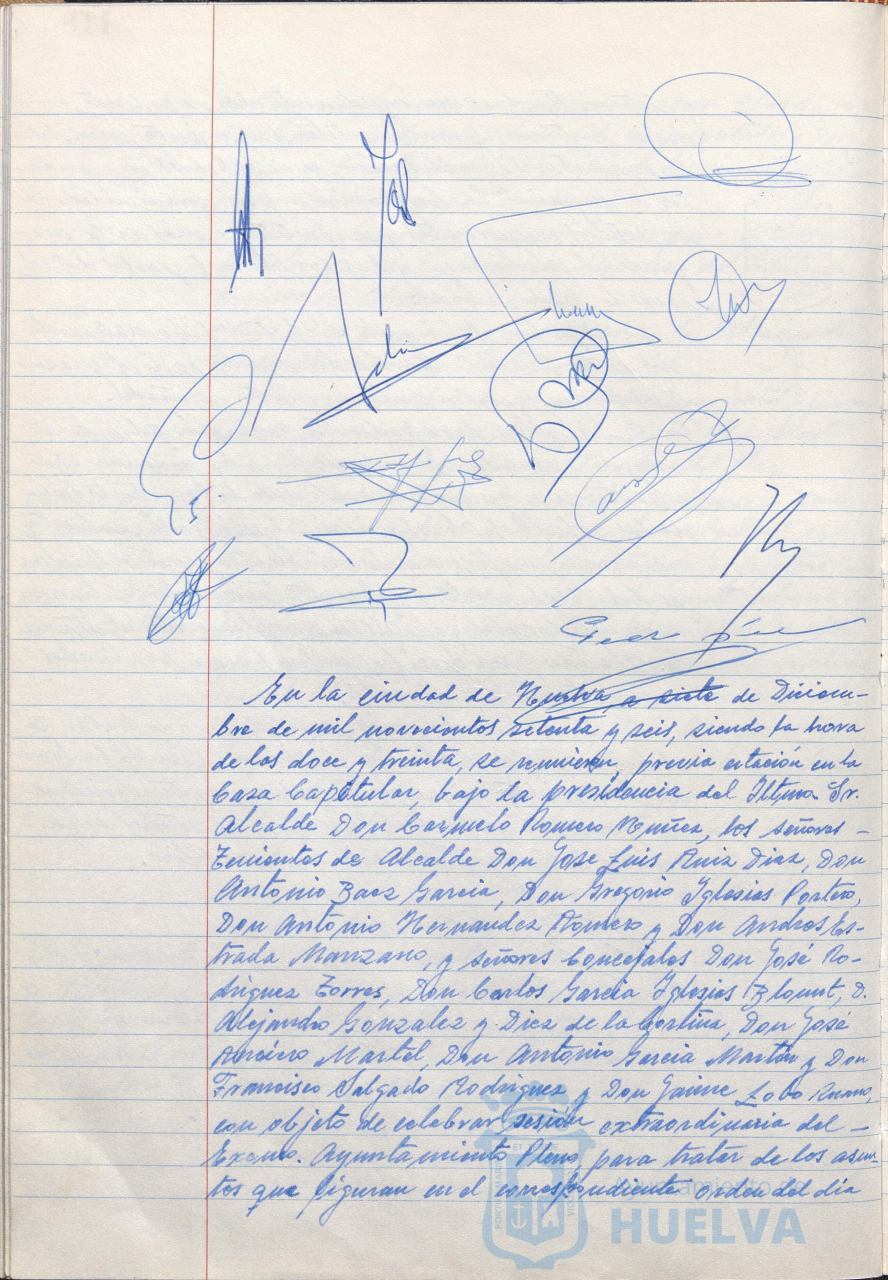 En la ciudad de Huelva, a siete de Diciem-
bre de mil novecientos setenta y seis, siendo la hora
de las doce y treinta, se reunieron, previa citación en la
Casa Capitular, bajo la presidencia del Iltmo. Sr.
Alcalde Don Carmelo Romero Núñez, los señores -
Tenientes de Alcalde Don José Luis Ruiz Diaz, Don
Antonio Baez Garcia, Don Gregorio Iglesias Portero,
Don Antonio Hernandez Romero y Don Andres Es-
trada Manzano, y señores Concejales Don José Ro-
driguez Torres, Don Carlos Garcia Iglesias Blount, D.
Alejandro Gonzalez y Diez de la Cortina, Don José
Martel, Don Antonio Garcia Martín y Don
Francisco Salgado Rodriguez y Don Jaime Lobo
con objeto de celebrar sesión extraordinaria del -
Excmo. Ayuntamiento Pleno, para tratar de los asun-
tos que figuran en el correspondiente Orden del dia
Ayuntamiento de
HUELVA